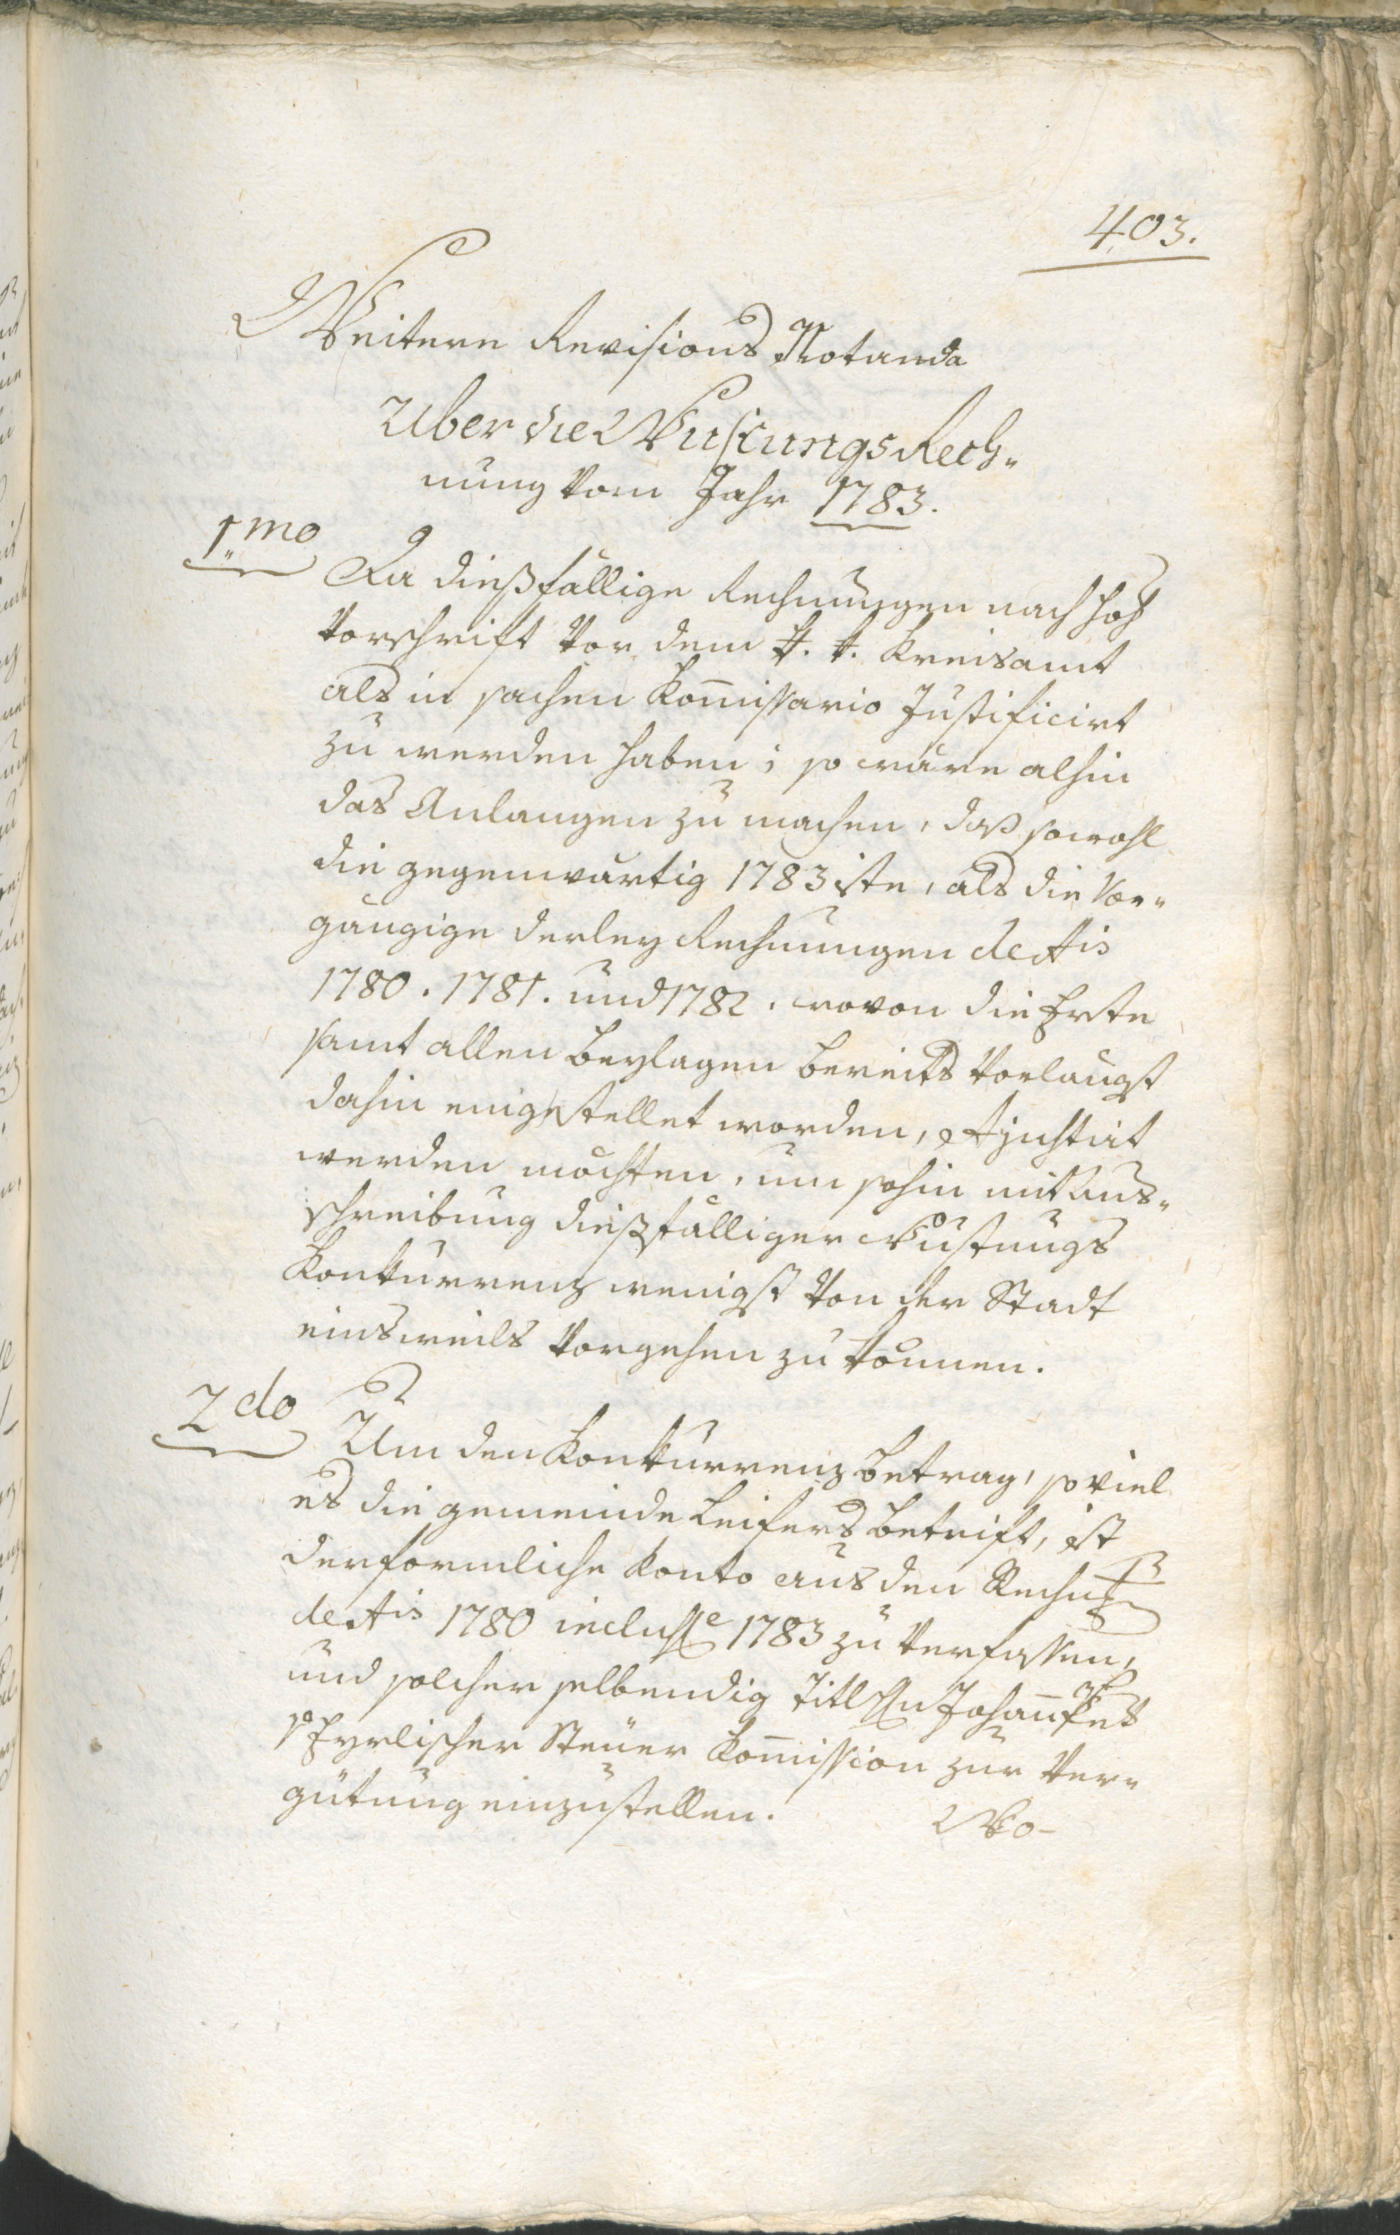 403.
Weitere Revisions Notanda
Uber die WustungsRech-
nung vom Jahr 1783.
1.mo
Da dießfällige Rechnungen nach hoh
Vorschrift vor dem k. k. Kreisamt
als in sachen Kom̅issario Justificirt
zu werden haben; so wäre alhin
das Anlangen zu machen, daß sowohl
die gegenwärtig 1783iste, als die Vor-
gängige derley Rechnungen de Ais
1780. 1781. und 1782. wovon die Erste
samt allen Beylagen bereits Vorlängst
dahin eingestellet worden, Adjustirt
werden möchten, um sohin mit Aus-
schreibung dießfälliger Wustungs
Konkurrenz wenigst von der Stadt
einsweils vorgehen zu können.
2do
Um den Konkurrenz betrag, so viel
es die gemeinde Leifers betrift, ist
der formliche Konto aus den Rechng
de Ais 1780 inclusse 1783 zu verfassen,
und solcher selbendig Titl Hn Johann
Steuer Kom̅ission zur Ver-
gütung einzustellen.
Wo-